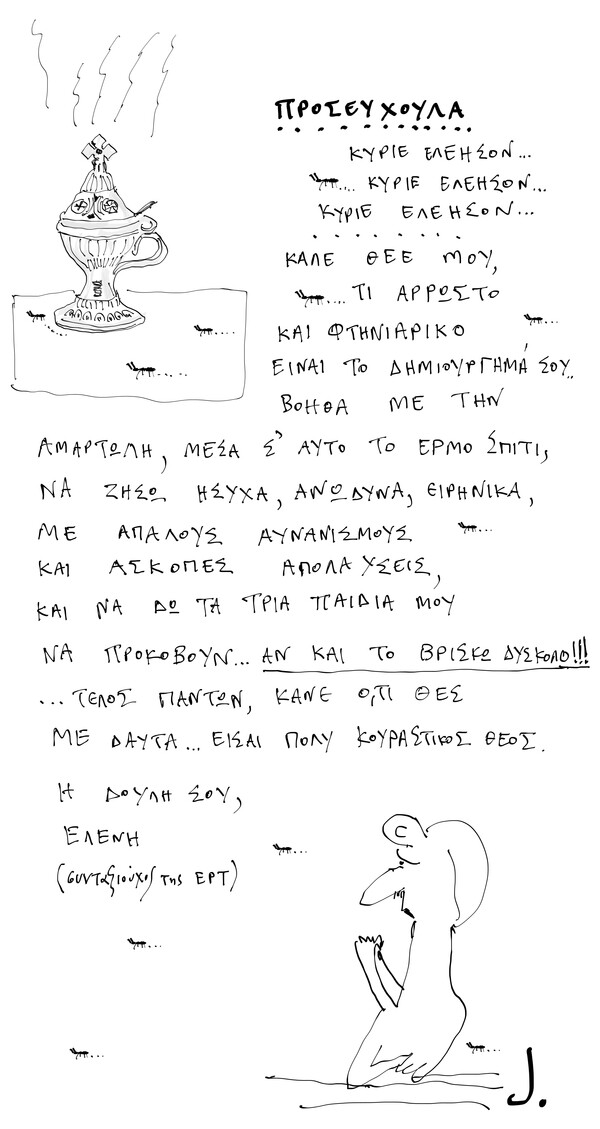 ΠΡΟΣΕΥΧΟΥΛΑ
ΚΥΡΙΕ ΕΛΕΗΣΟΝ...
.... ΚΥΡΙΕ ΕΛΕΗΣΟΝ...
ΚΥΡΙΕ ΕΛΕΗΣΟΝ...
ΚΑΛΕ ΘΕΕ ΜΟΥ,
.... ΤΙ ΑΡΡΩΣΤΟ
ΚΑΙ ΦΤΗΝΙΑΡΙΚΟ
ΕΙΝΑΙ ΤΟ ΔΗΜΙΟΥΡΓΗΜΑ΄ ΣΟΥ..
ΒΟΗΘΑ ΜΕ ΤΗΝ
ΑΜΑΡΤΩΛΗ, ΜΕΣΑ Σ' ΑΥΤΟ ΤΟ ΕΡΜΟ ΣΠΙΤΙ,
ΝΑ ΖΗΣΩ ΗΣΥΧΑ, ΑΝΩΔΥΝΑ, ΕΙΡΗΝΙΚΑ,
ΜΕ ΑΠΑΛΟΥΣ ΑΥΝΑΝΙΣΜΟΥΣ
ΚΑΙ ΑΣΚΟΠΕΣ ΑΠΟΛΑΥΣΕΙΣ,
ΚΑΙ ΝΑ ΔΩ ΤΑ ΤΡΙΑ ΠΑΙΔΙΑ ΜΟΥ
ΝΑ ΠΡΟΚΟΒΟΥΝ... ΑΝ ΚΑΙ ΤΟ ΒΡΙΣΚΩ ΔΥΣΚΟΛΟ!!!
...ΤΕΛΟΣ ΠΑΝΤΩΝ, ΚΑΝΕ Ο,ΤΙ ΘΕΣ
ΜΕ ΔΑΥΤΑ... ΕΙΣΑΙ ΠΟΛΥ ΚΟΥΡΑΣΤΙΚΟΣ ΘΕΟΣ.
Η ΔΟΥΛΗ ΣΟΥ,
ΕΛΕΝΗ
(συνταξιούχος της ΕΡΤ)
J.